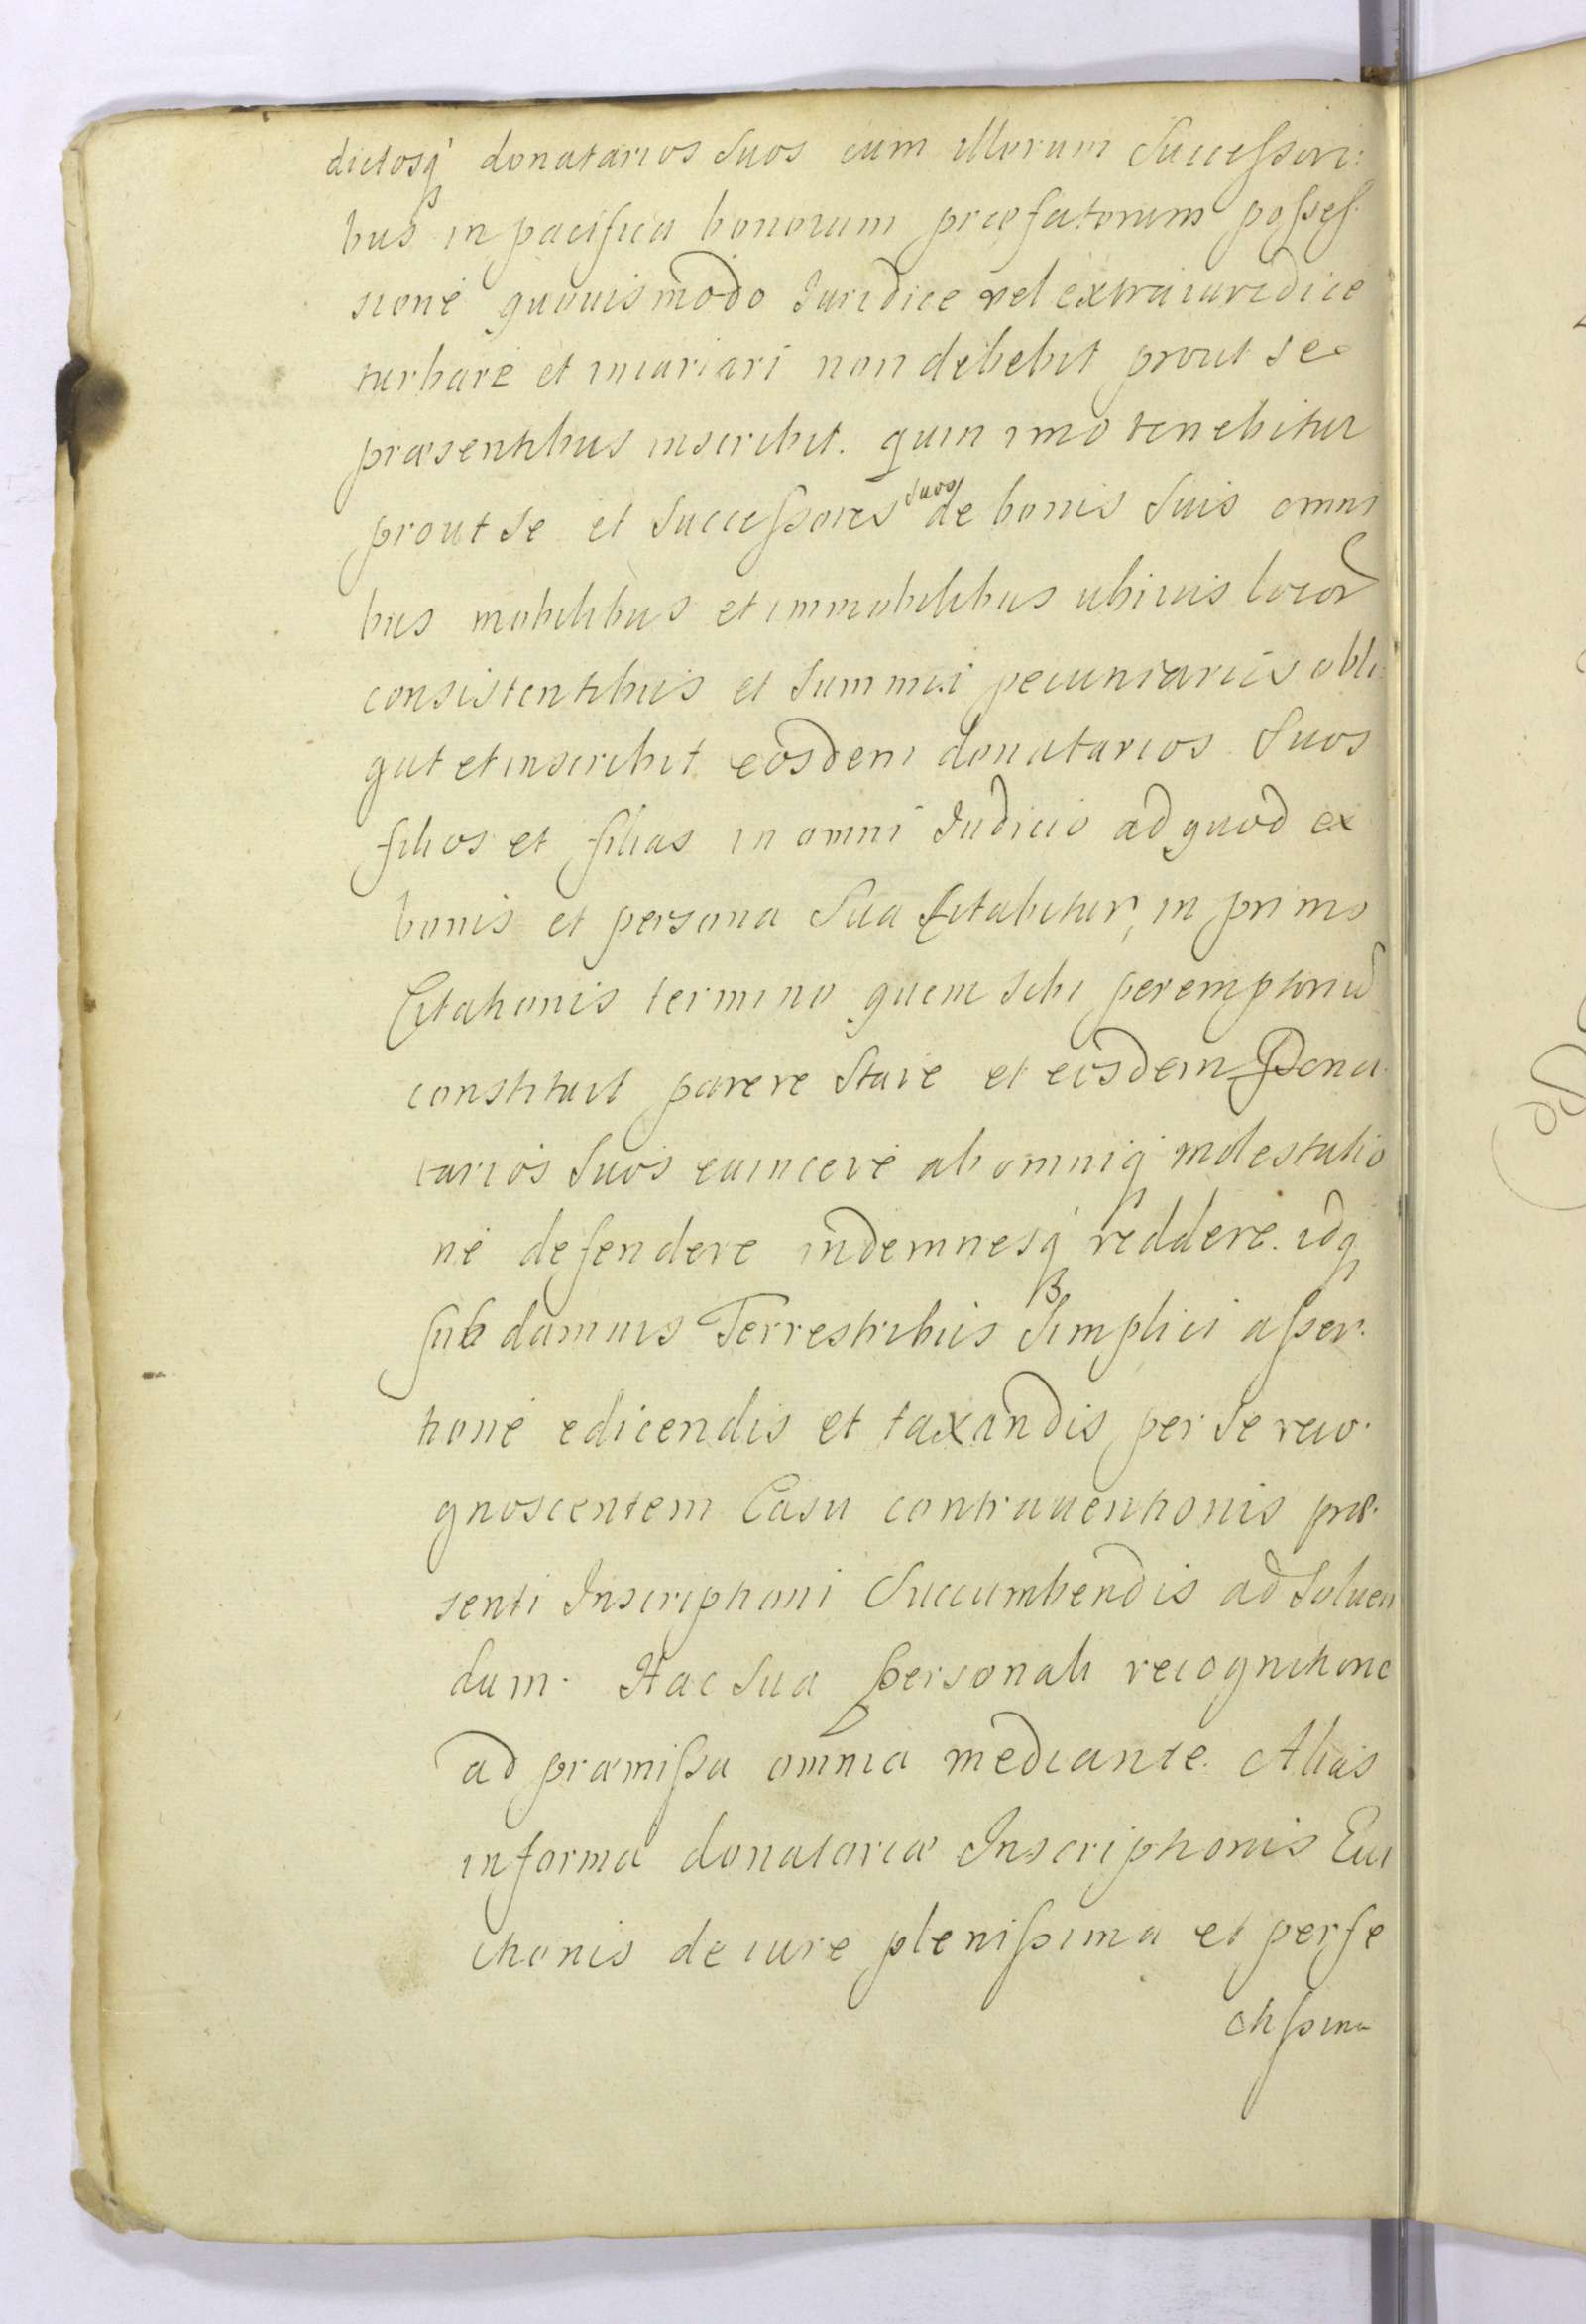 dictosq́ donatarios Suos cum illorum Successori:
bus in pacifica bonorum præfatorum posses-
sione quouismodo Juridice vel extraiuridice
turbare et iniuriari non debebit prout se
præsentibus inscribit. quin imo tenebitur
prout se et Successores suos de bonis Suis omni
bus mobilibus et immobilibus ubiuis locor
consistentibus et Summis pecuniariis obli-
gat et inscribit eosdem donatarios Suos
filios et filias in omni Judicio ad quod ex
bonis et persona Sua Citabitur, in primo
Citationis termino quem sibi peremptoriū
constituit parere Stare et eosdem Dona-
tarios Suos euincere ab omniq molestatio
ne defendere indemnesq́ reddere. idq
sub damnis Terrestribus Simplici asser-
tione edicendis et taxandis per Se reco-
gnoscentem Casu contrauentionis præ-
senti Inscriptioni Succumbendis ad Soluen
dum. Hac Sua personali recognitione
ad præmissa omnia mediante. Alias
in forma donatoriæ Inscriptionis Eui
ctionis de iure plenissima et perfe
ctissima